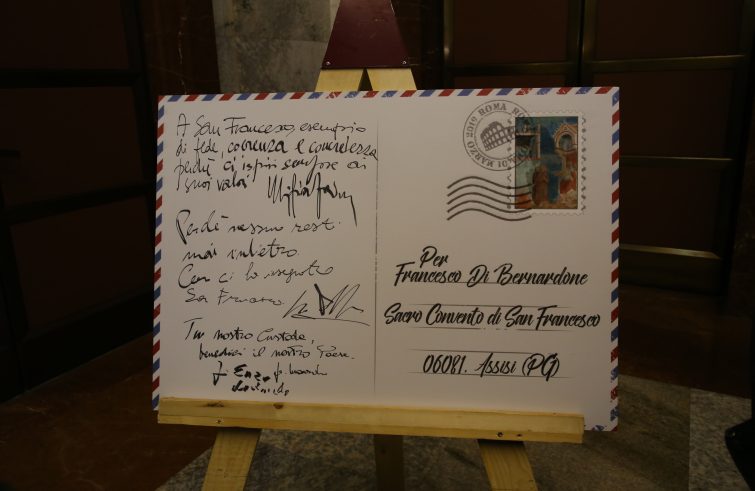 A San Francesco, esempio
di fede, coerenza e concretezza
perché ci ispiri sempre ai
suoi valori
Perché nessun resti
mai indietro.
Come ci ha insegnato
San Francesco.
Tu nostro Custode,
benedici il nostro Paese.
Enzo
ROMA
MARZO 2019
Per
Francesco Di Bernardone
Sacro Convento di San Francesco
06081. Assisi (PG)